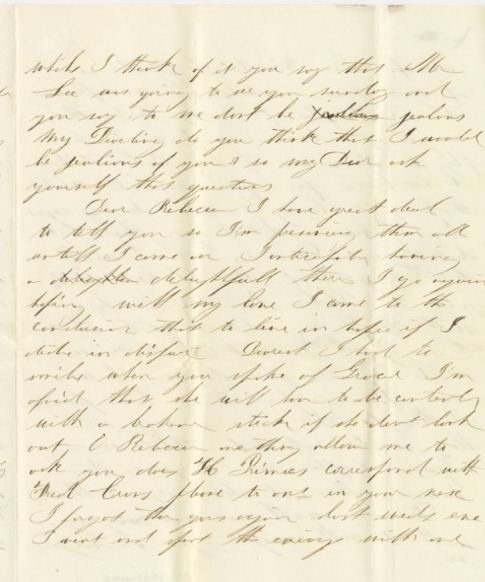 while I think of it you say that Mr
Lee was going to see you sunday and
you say to me dont be jealous
My Darling do you think that I would
be jealious of you & so my Dear ask
yourself that question
Dear Rebecca I have great deal
to tell you so I'm reserving them all
untill I come in anticipation having
a delightfull there I go again
hoping well my love I came to the
conclusion that to live in hopes if I
die in dispare Dearest I had to
smile when you spoke of Grace I'm
afraid that she will have to be
with a stick if she dont look
out O Rebecca one thing allow me to
ask you does H Primus correspond with
Fred please to ans in your next
I forgot there goes again last weeks eve
I went and spent the evening with